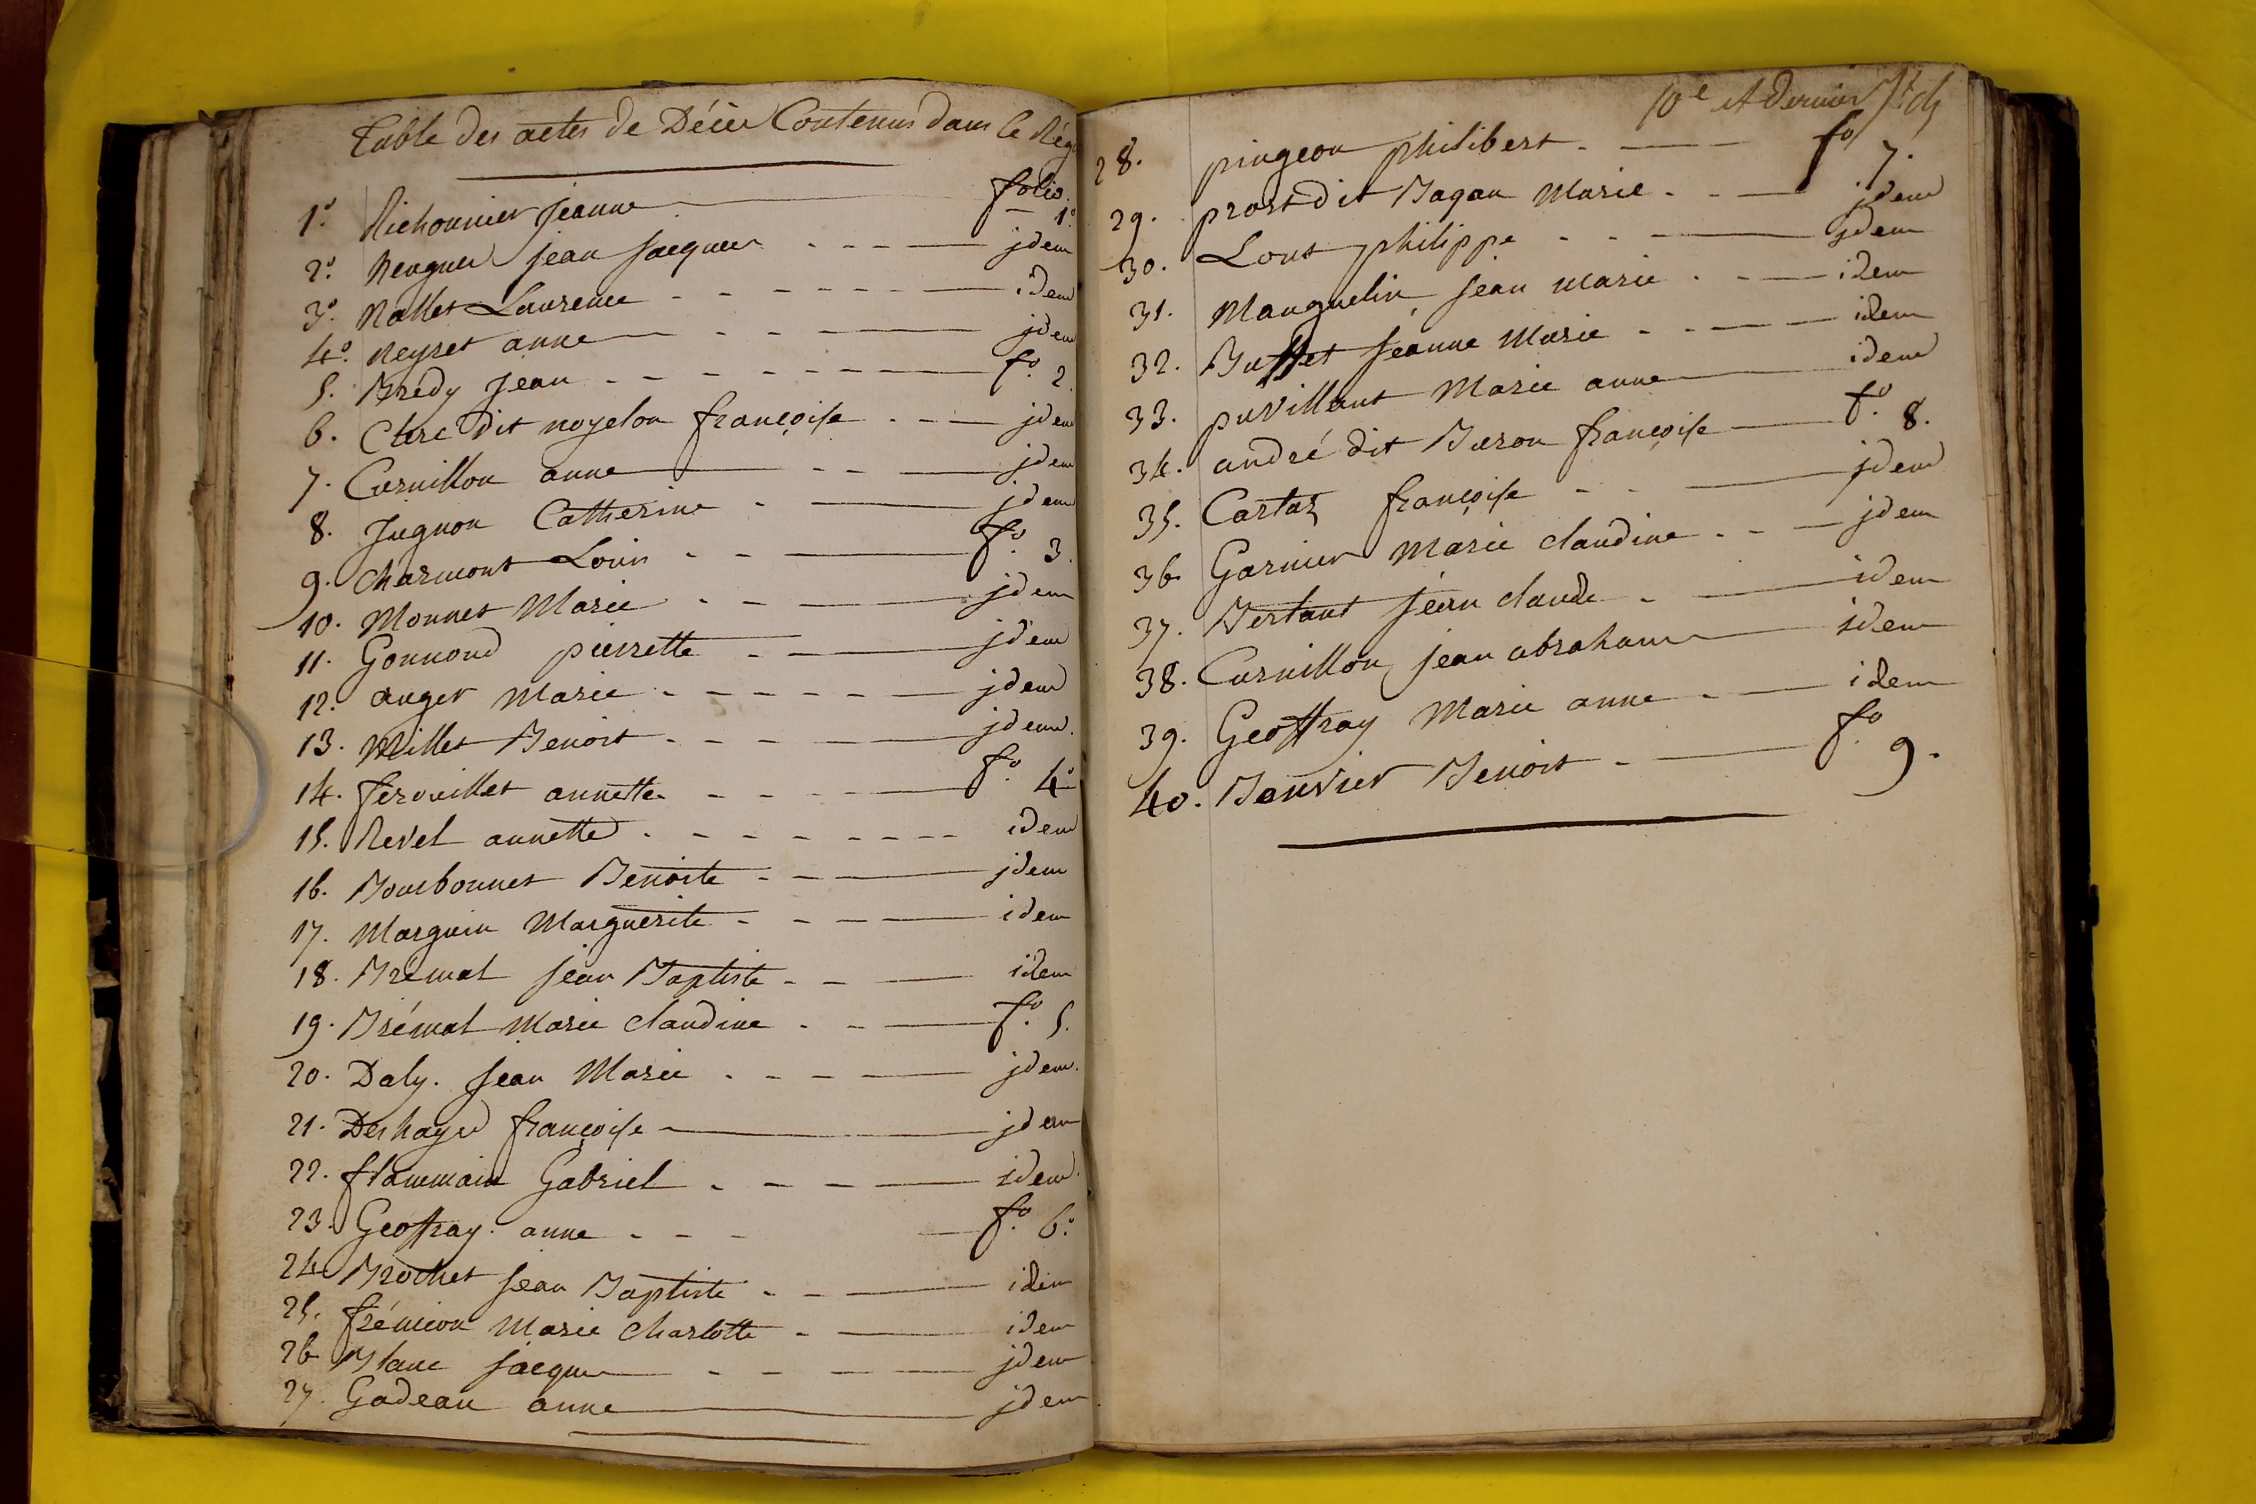 Table des actes de Décès Contenus dans le Rég
folio.
1° Richonnier jeanne 1°
2° Reugner jean jacques jdem
3° Nallet Laurence idem
4° Neyret anne jdem
5. Brédy jean f° 2.
6. Clerc dit noyelon françoise jdem
7. Curnillon anne jdem
8. Jugnon Catherine jdem
9. Charmont Louis f° 3.
10. Monnet Marie jdem
11. Gonnond pierrette jdem
12. auger Marie jdem
13. Millet Benoit jdem.
14. ferouillet annette f° 4°
15. Revel annette idem
16. Bourbonnet Benoite jdem
17. Marguin Marguerite idem
18. Brémal jean Baptiste idem
19. Brémal Marie claudine f° 5.
20. Daly. jean Marie jdem.
21. Deshayes françoise jdem
22. flammain Gabriel idem.
23. Geoffray. anne f° 6°
24 Brochet jean Baptiste idem
25. frémion Marie Charlotte idem
26 Blanc jacques jdem
27. Gadeau anne jdem
10e et Dernier
28. pingeon philibert f° 7.
29. prost dit Bagan Marie jdem
30. Lont philippe jdem
31. Manguelin jean marie idem
32. Buffet jeanne Marie idem
33. puvillant Marie anne idem
34. andré dit Buron françoise f° 8.
35. Cartaz françoise jdem
36 Garnier Marie claudine jdem
37. Bertant jean claude idem
38. Curnillon jean abraham idem
39. Geoffray Marie anne idem
40. Bouvier Benoit f° 9.